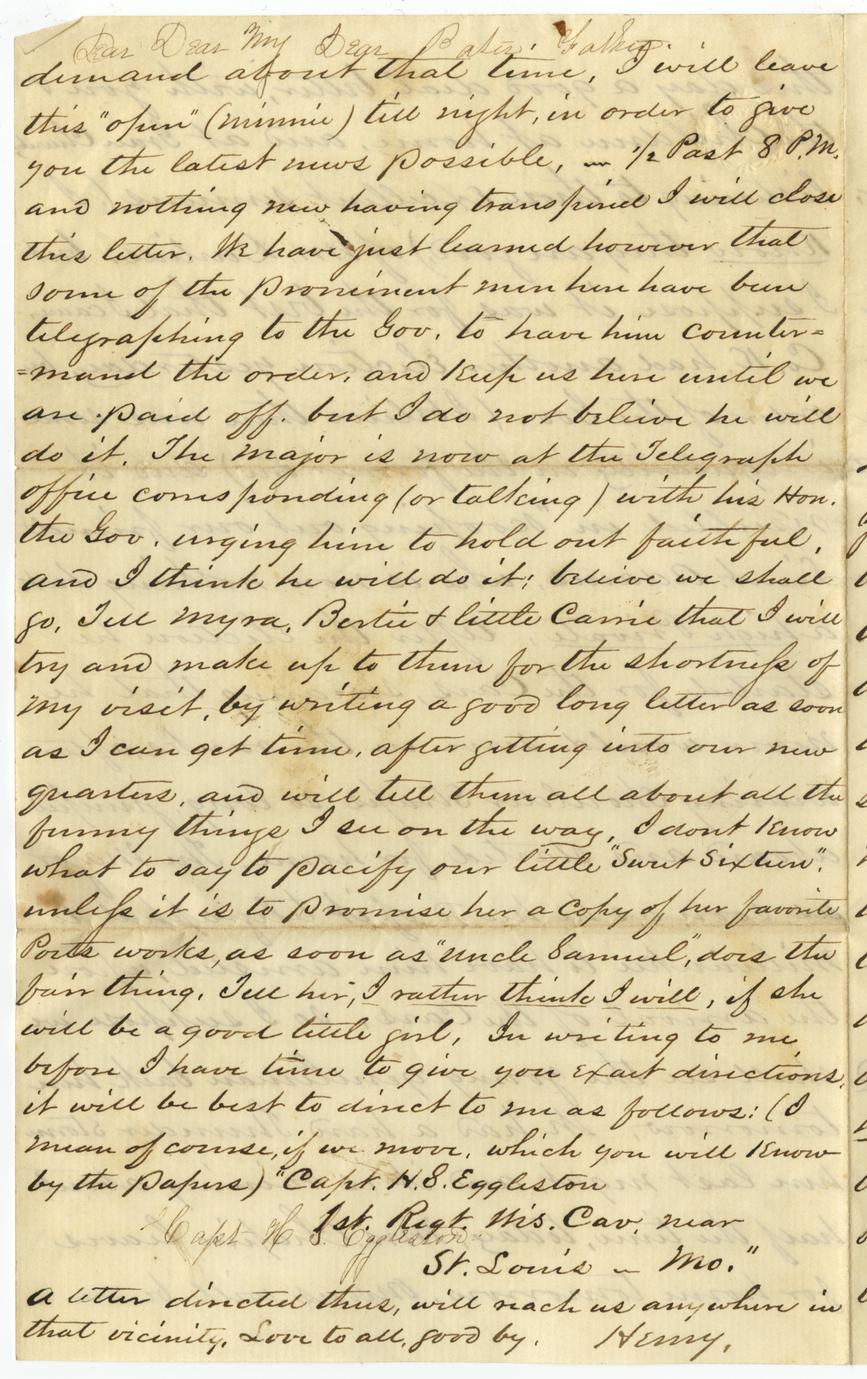 Dear Dear My Dear Father
demand about that time, I will leave
this "open" (minnie) till night, in order to give
you the latest news possible, — 1/2 Past 8 P.M.
and nothing new having transpired I will close
this letter. We have just learned however that
some of the prominent men here have been
telegraphing to the Gov. to have him counter=
=mand the order, and Keep us here until we
are paid off. but I do not beleive he will
do it. The Major is now at the Telegraph
office corresponding (or talking) with his Hon.
the Gov. urging him to hold out faithful,
and I think he will do it; beleive we shall
go. Tell Myra, Bertie & little Carrie that I will
try and make up to them for the shortness of
my visit, by writing a good long letter as soon
as I can get time, after getting into our new
quarters, and will tell them all about all the
funny things I see on the way, I dont Know
what to say to pacify our little "Sweet Sixteen".
unless it is to promise her a copy of her favorite
Poets works, as soon as "Uncle Samuel", does the
fair thing. Tell her, I rather think I will, if she
will be a good little girl, In writing to me
before I have time to give you exact directions,
it will be best to direct to me as follows: (I
mean of course, if we move, which you will Know
by the papers) "Capt. H.S. Eggleston
1st. Regt. Wis. Cav. near
Capt H S Eggleston
St. Louis — Mo."
a letter directed thus, will reach us anywhere in
that vicinity. Love to all, good by. Henry.